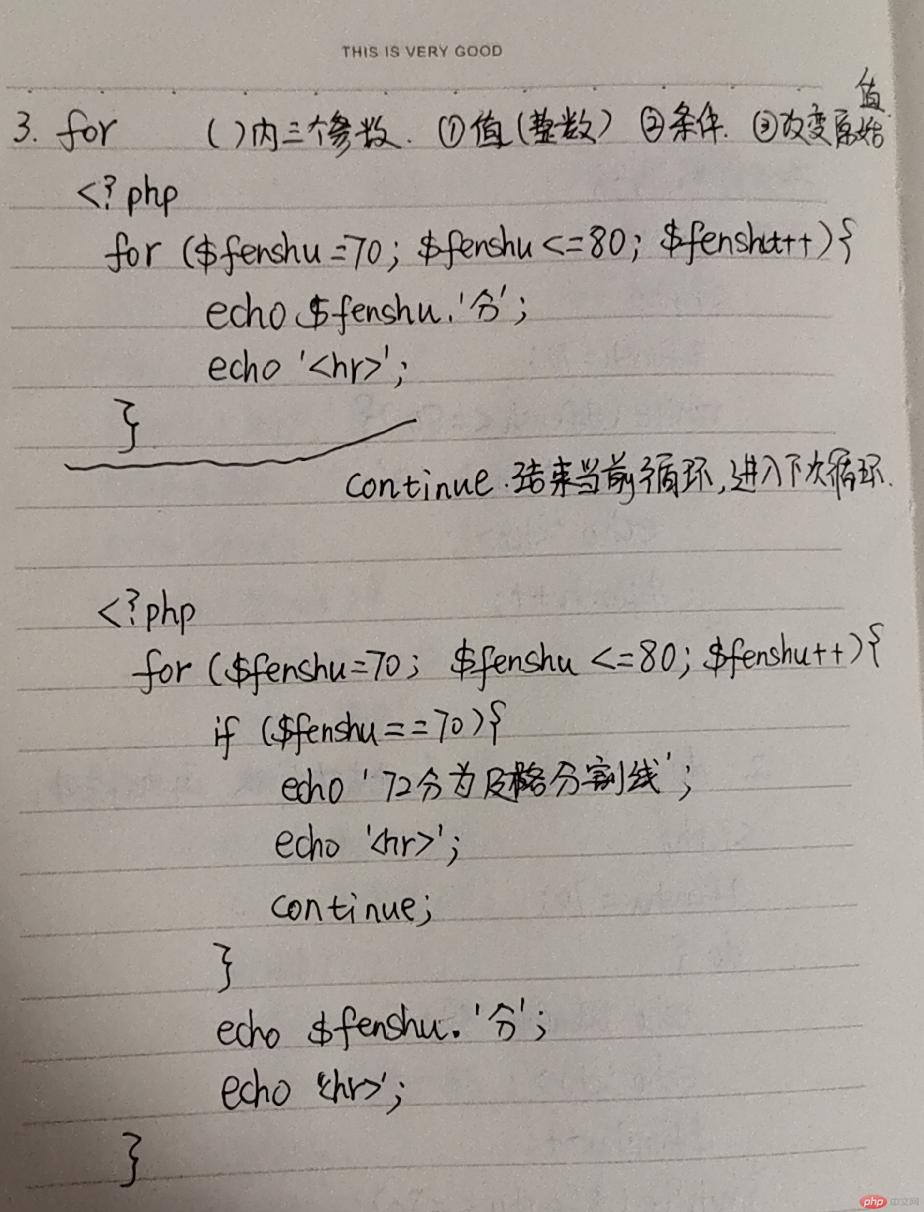 THIS IS VERY GOOD
值
3. for ( )内三个参数. ①值(整数) ②条件. ③改变原始
<?php
for ($fenshu=70; $fenshu<=80; $fenshu++){
echo $fenshu.'分';
echo '<hr>';
}
continue.结束当前循环,进入下次循环.
<?php
for ($fenshu=70; $fenshu<=80; $fenshu++){
if ($fenshu==70){
echo '72分为及格分割线';
echo '<hr>';
continue;
}
echo $fenshu.'分';
echo '<hr>';
}
php中文网